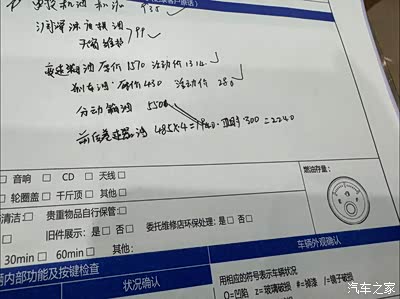 机油 机 435
润滑 油
>99
变速箱油 原价1570 活动价1314
刹车油 原价430 活动价280
分动箱油 550
前后差速器油 485×4=1940 · 工时:300=2240
□ 音响 □ CD □ 天线□
□ 轮圈盖□ 千斤顶□ 其他□
燃油存量:
清洁:□ 贵重物品自行保管:□
□ 旧件展示:□是 □否 委托维修店环保处理:□是 □否
30min □ 60min □ 其他:
辆内部功能及按键检查 车辆外观确认
状况确认 用相应的符号表示车辆状况
○=凹陷 z=玻璃破损 #=掉漆 /=镜子破损
汽车之家